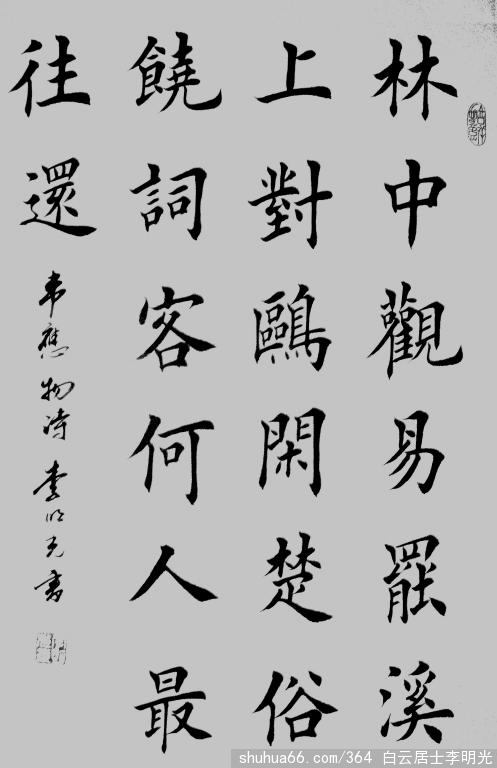 林中觀易罷溪
上對鷗閑楚俗
饒詞客何人最
往還
韦應物诗 李明光书
shuhua66.com/364 白云居士李明光